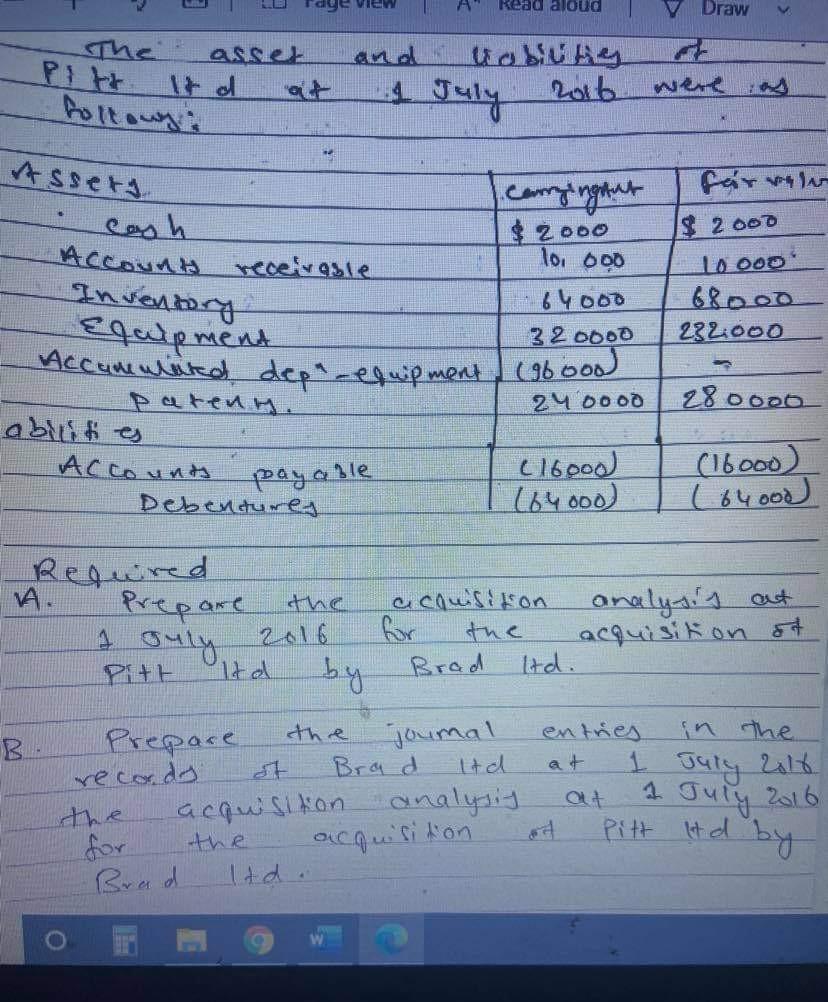 Page view
A
Read aloud
Draw
The asset and liabilities of
Pitt ltd at 1 July 2016 were as
follows:
Assets
Carrying Amt
fair valu
Cash $2000 $2000
Accounts receivable 10,000 10000
Inventory 64000 68000
Equipment 320000 232,000
Accumulated depn-equipment (96000) -
Patents. 240000 280000
abilities
Accounts payable (16000) (16000)
Debentures (64000) (64000)
Required
A. Prepare the acquisition analysis at
1 July 2016 for the acquisition of
Pitt ltd by Brad ltd.
B. Prepare the journal entries in the
records of Brad ltd at 1 July 2016
the acquisition analysis at 1 July 2016
for the acquisition of Pitt ltd by
Brad ltd.
W